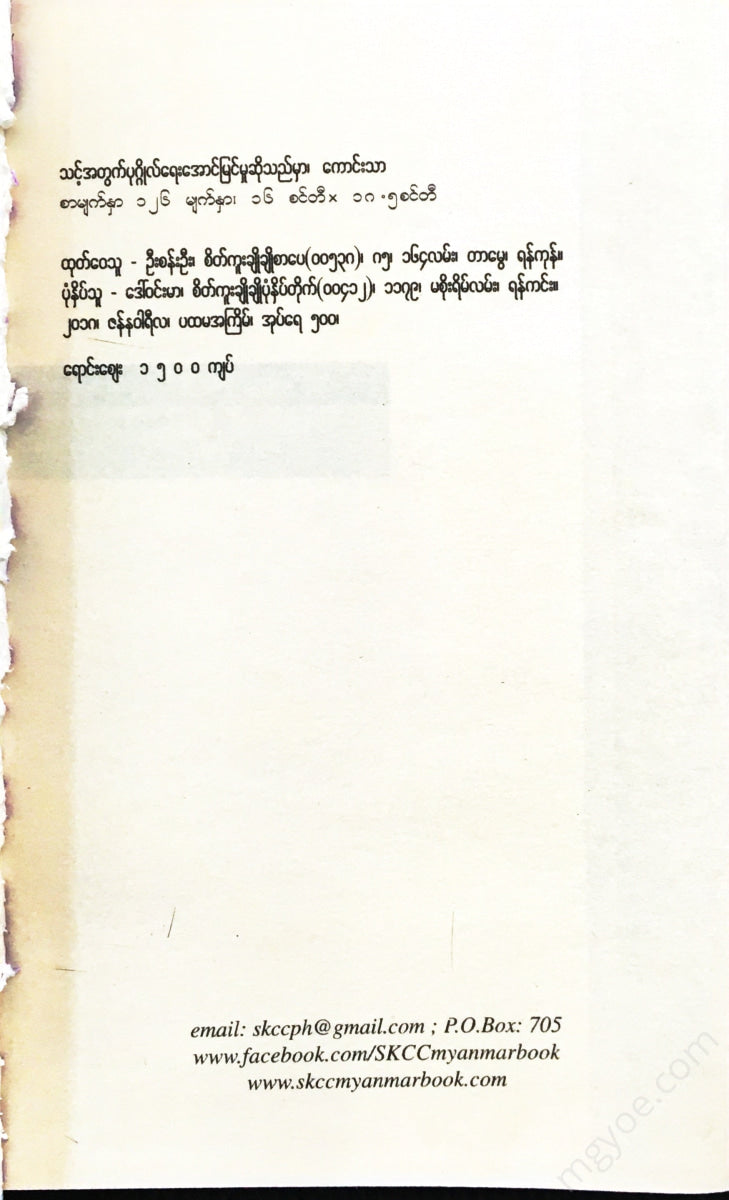 သင့်အတွက်ပုဂ္ဂိုလ်ရေးအောင်မြင်မှုဆိုသည်မှာ၊ ကောင်းသာ
စာမျက်နှာ ၁၂၆ မျက်နှာ၊ ၁၆ စင်တီ× ၁၈.၅စင်တီ
ထုတ်ဝေသူ - ဦးစန်းဦး၊ စိတ်ကူးချိုချိုစာပေ(၀၀၅၃၈)၊ ၈၅၊ ၁၆၄လမ်း၊ တာမွေ၊ ရန်ကုန်။
ပုံနှိပ်သူ - ဒေါ်ဝင်းမာ၊ စိတ်ကူးချိုချိုပုံနှိပ်တိုက်(၀၀၄၁၂)၊ ၁၁၇၉၊ မစိုးရိမ်လမ်း၊ ရန်ကင်း။
၂၀၁၈၊ ဇန်နဝါရီလ၊ ပထမအကြိမ်၊ အုပ်ရေ ၅၀၀၊
ရောင်းဈေး ၁ ၅ ၀ ၀ ကျပ်
email: skccph@gmail.com ; P.O.Box: 705
www.facebook.com/SKCCmyanmarbook
www.skccmyanmarbook.com
mgyoe.com